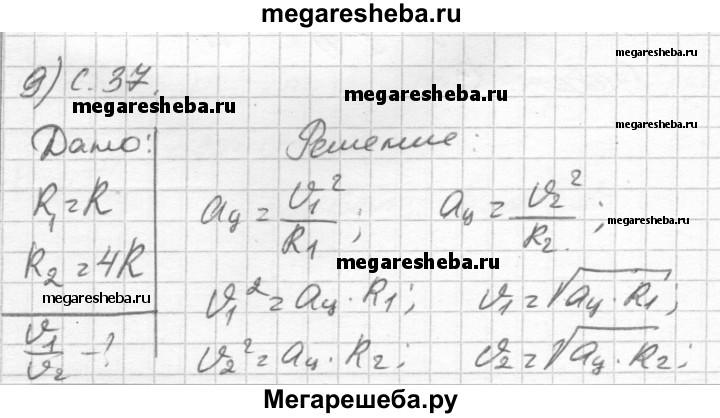 megaresheba.ru
megaresheba.ru
9) с. 37.
megaresheba.ru
megaresheba.ru
Дано: Решение:
megaresheba.ru
R₁ = R
aц = υ₁²/R₁; aц = υ₂²/R₂;
megaresheba.ru
R₂ = 4R
megaresheba.ru
megaresheba.ru
υ₁² = aц · R₁; υ₁ = √(aц · R₁);
υ₁/υ₂ - ? υ₂² = aц · R₂; υ₂ = √(aц · R₂);
Мегарешеба.ру